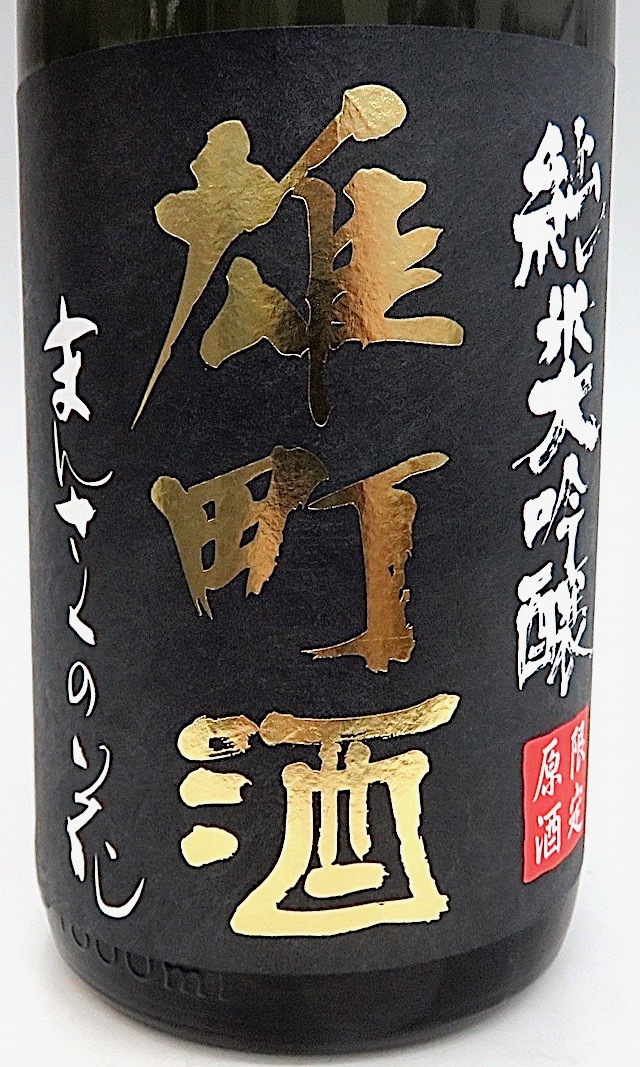 純米大吟醸
限定
原酒
雄町酒
まんさくの花
1800ml